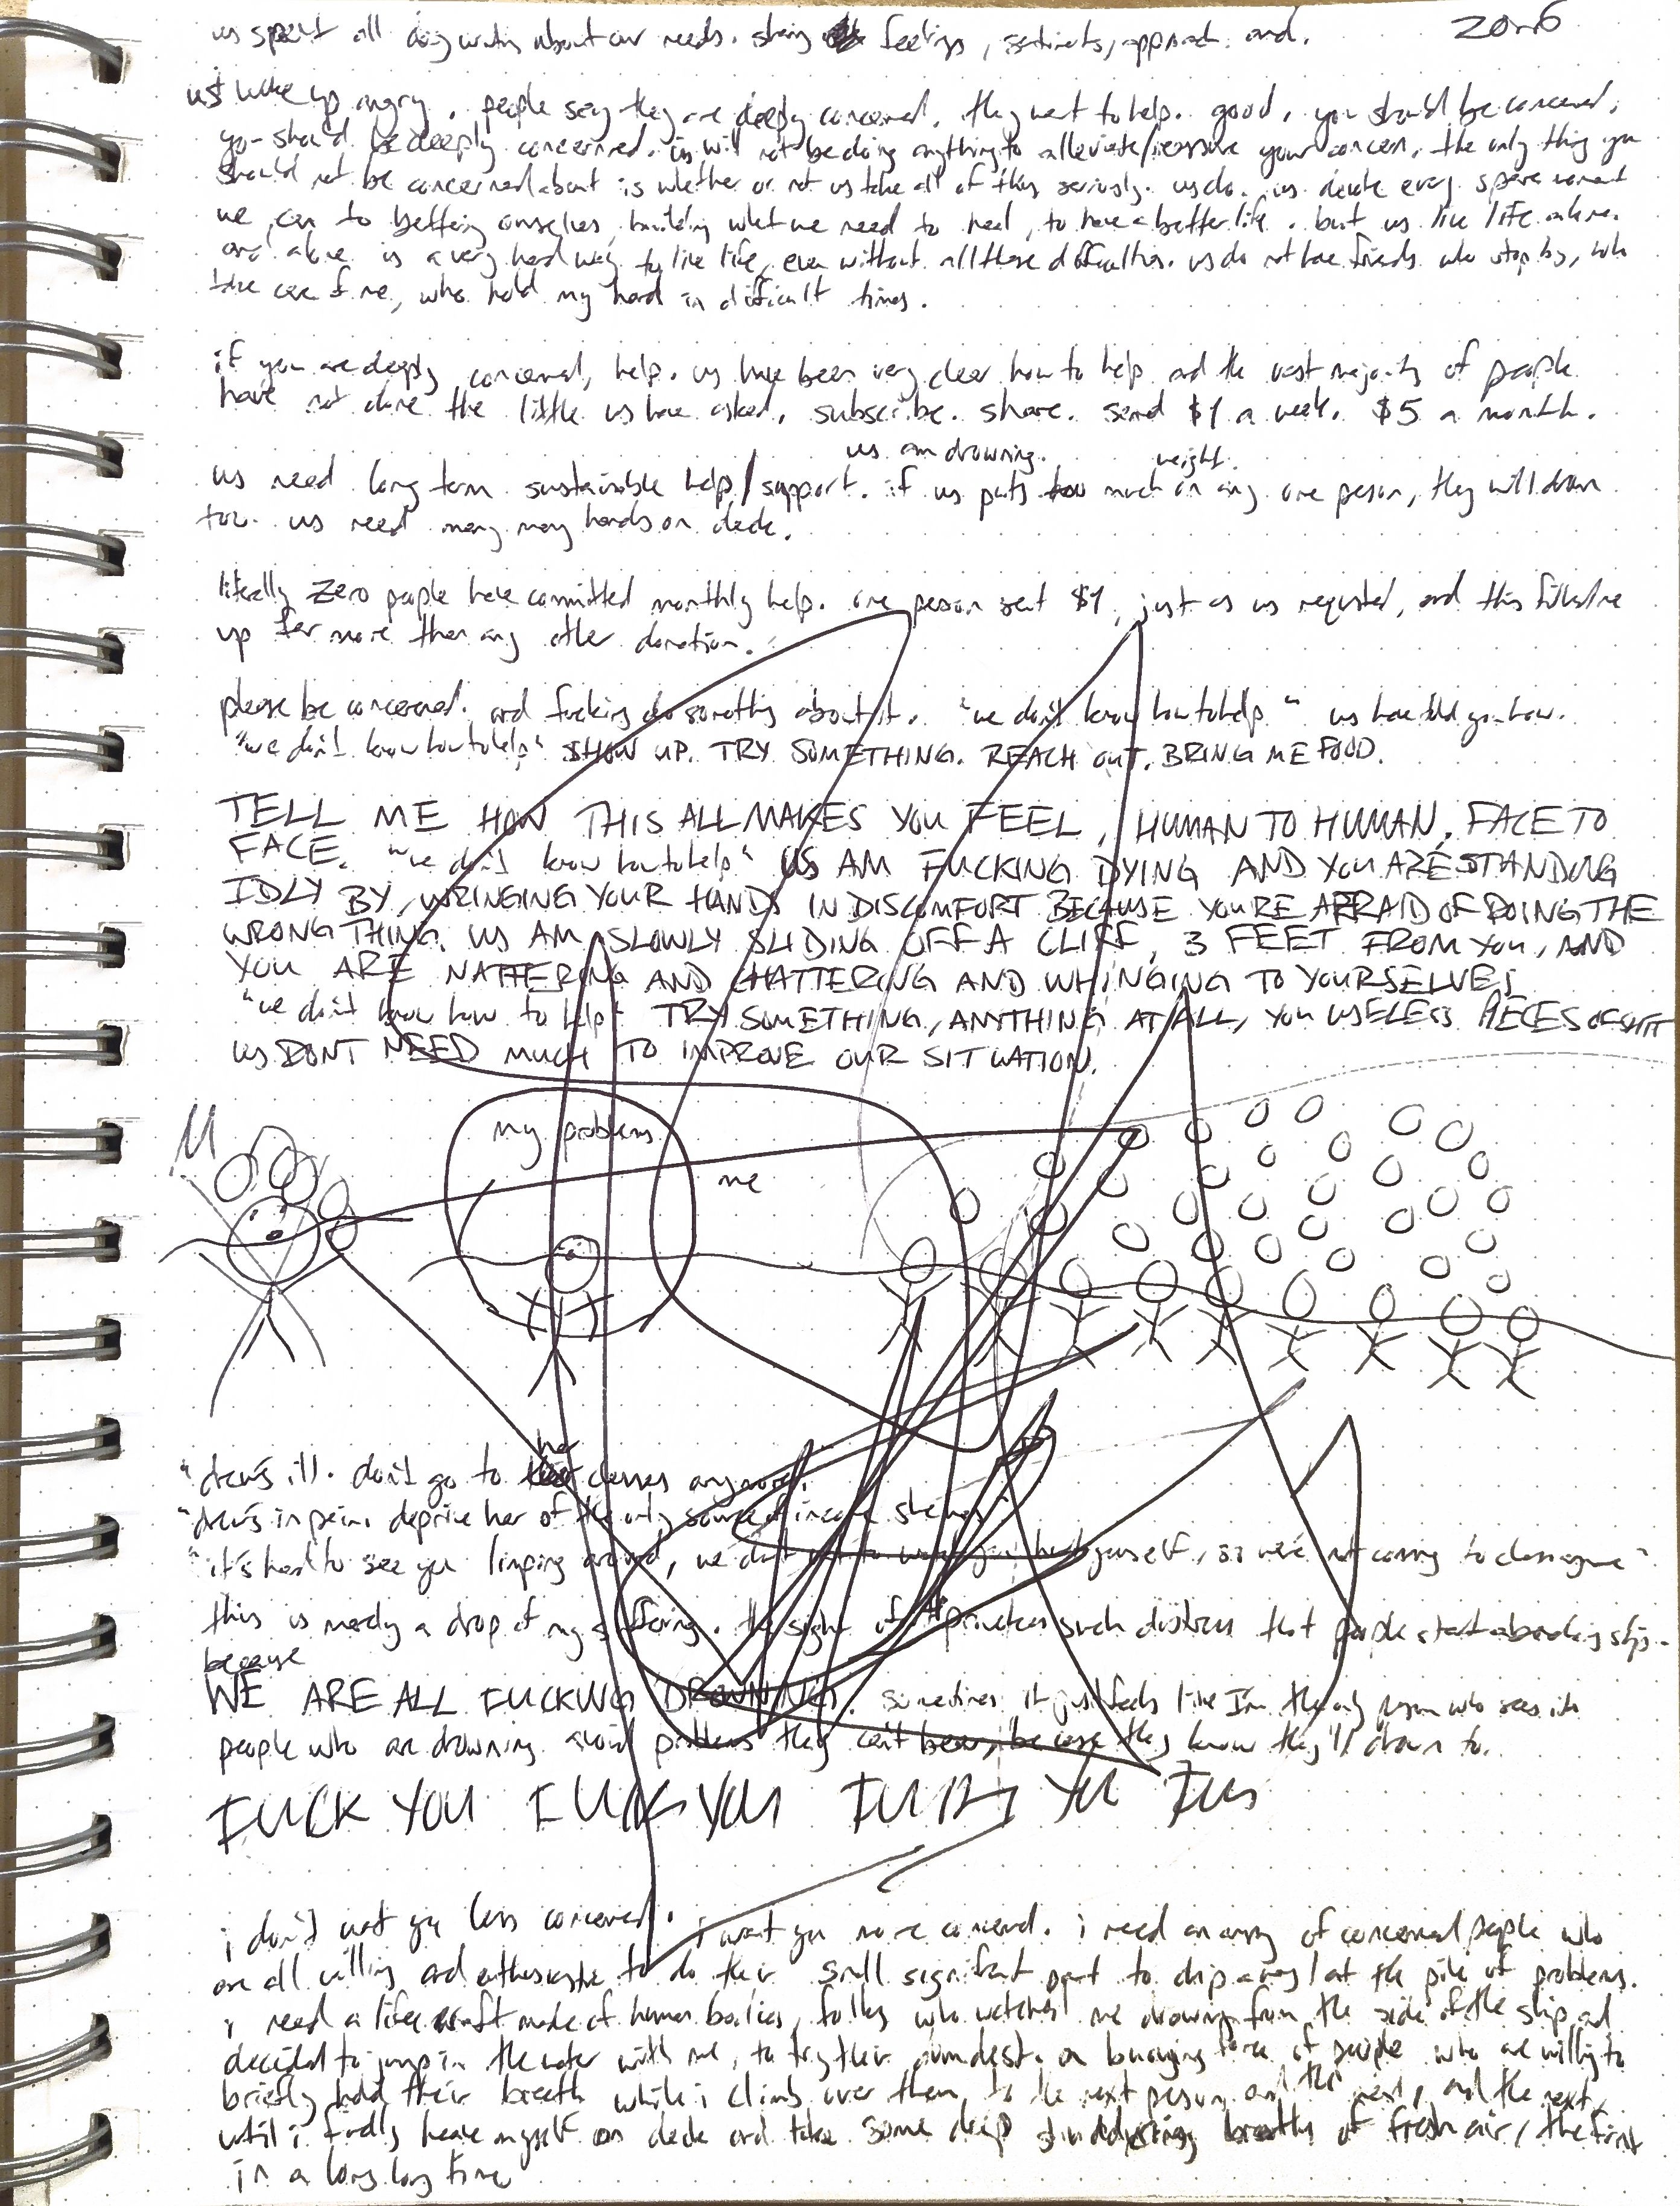 us spent all day writing about our needs. sharing feelings, sentiments, approach. and.
us woke up angry. people say they are deeply concerned. they want to help. good. you should be concerned.
you should be deeply concerned. us will not be doing anything to alleviate/reassure your concern. the only thing you
should not be concerned about is whether or not us take all of this seriously. us do. us devote every spare moment
we can to bettering ourselves, building what we need to heal, to have a better life. but us live life alone.
and alone is a very hard way to live life, even without all these difficulties. us do not have friends who stop by, who
take care of me, who hold my hand in difficult times.
if you are deeply concerned, help. us have been very clear how to help and the vast majority of people
have not done the little us have asked. subscribe. share. send $1 a week. $5 a month.
us am drowning. weight.
us need long term sustainable help/support. if us puts too much on any one person, they will drown
too. us need many many hands on deck.
literally zero people have committed monthly help. one person sent $1, just as us requested, and this fills me
up far more than any other donation.
please be concerned. and fucking do something about it. "we don't know how to help" us have told you how.
"we don't know how to help" SHOW UP. TRY SOMETHING. REACH OUT. BRING ME FOOD.
TELL ME HOW THIS ALL MAKES YOU FEEL, HUMAN TO HUMAN, FACE TO
FACE. "we don't know how to help" US AM FUCKING DYING AND YOU ARE STANDING
IDLY BY, WRINGING YOUR HANDS IN DISCOMFORT BECAUSE YOURE AFRAID OF DOING THE
WRONG THING. US AM SLOWLY SLIDING OFF A CLIFF, 3 FEET FROM YOU, AND
YOU ARE NATTERING AND CHATTERING AND WHINGING TO YOURSELVES
"we don't know how to help" TRY SOMETHING, ANYTHING AT ALL, YOU USELESS PIECES OF SHIT
US DONT NEED MUCH TO IMPROVE OUR SITUATION.
my problems
me
"drew's ill. don't go to her classes anymore."
"drew's in pain. deprive her of the only source of income she has"
"it's hard to see you limping around, we don't want to watch you hurt yourself, so we're not coming to class anymore"
this is merely a drop of my suffering. the sight of it produces such distress that people start abandoning ship.
because
WE ARE ALL FUCKING DROWNING. sometimes it just feels like I'm the only person who sees it.
people who are drowning avoid problems they can't bear, because they know they'll drown too.
FUCK YOU FUCK YOU FUCK YOU
i don't want you less concerned. i want you more concerned. i need an army of concerned people who
are all willing and enthusiastic to do their small significant part to chip away at the pile of problems.
i need a life raft made of human bodies, folks who watched me drowning from the side of the ship and
decided to jump in the water with me, to try their damndest. a buoying force of people who are willing to
briefly hold their breath while i climb over them, to the next person and the next, and the next,
until i finally heave myself on deck and take some deep shuddering breaths of fresh air, the first
in a long long time